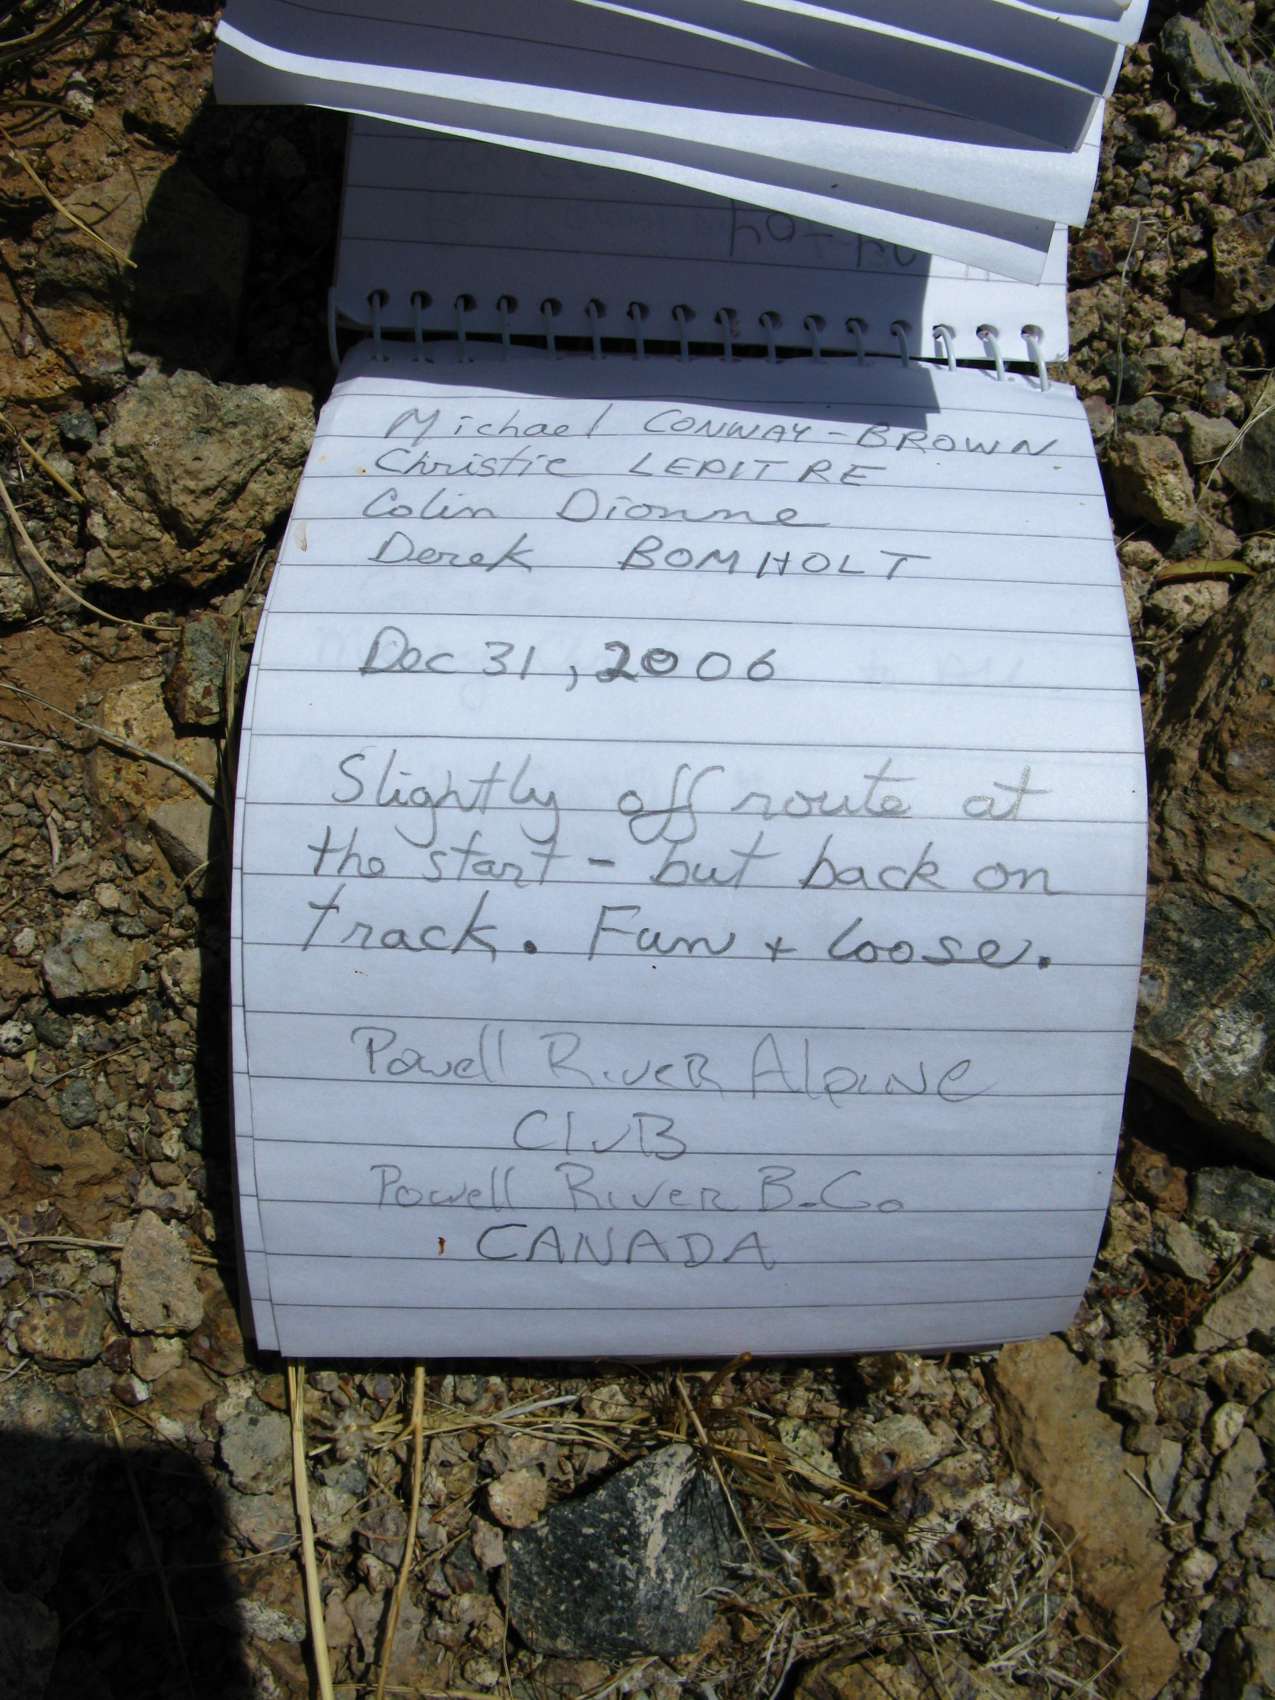 Michael CONWAY-BROWN
Christie LEPITRE
Colin Dionne
Derek BOMHOLT
Dec 31, 2006
Slightly off route at
the start - but back on
track. Fun + loose.
Powell River Alpine
Club
Powell River B.C.
CANADA